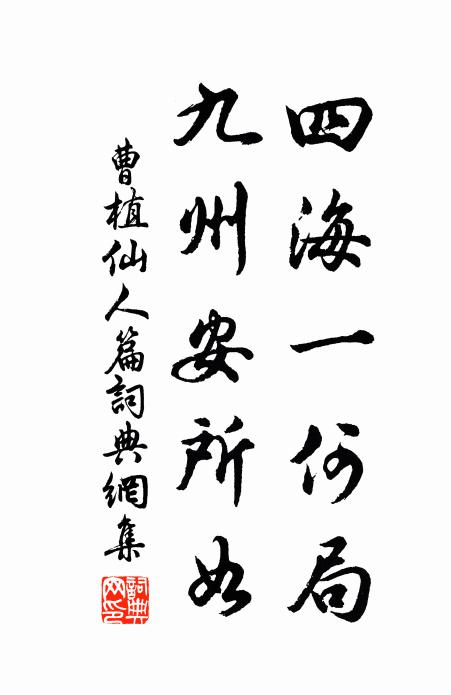 四海一何局
九州安所如
曹植仙人篇詞典網集
詞典
網印